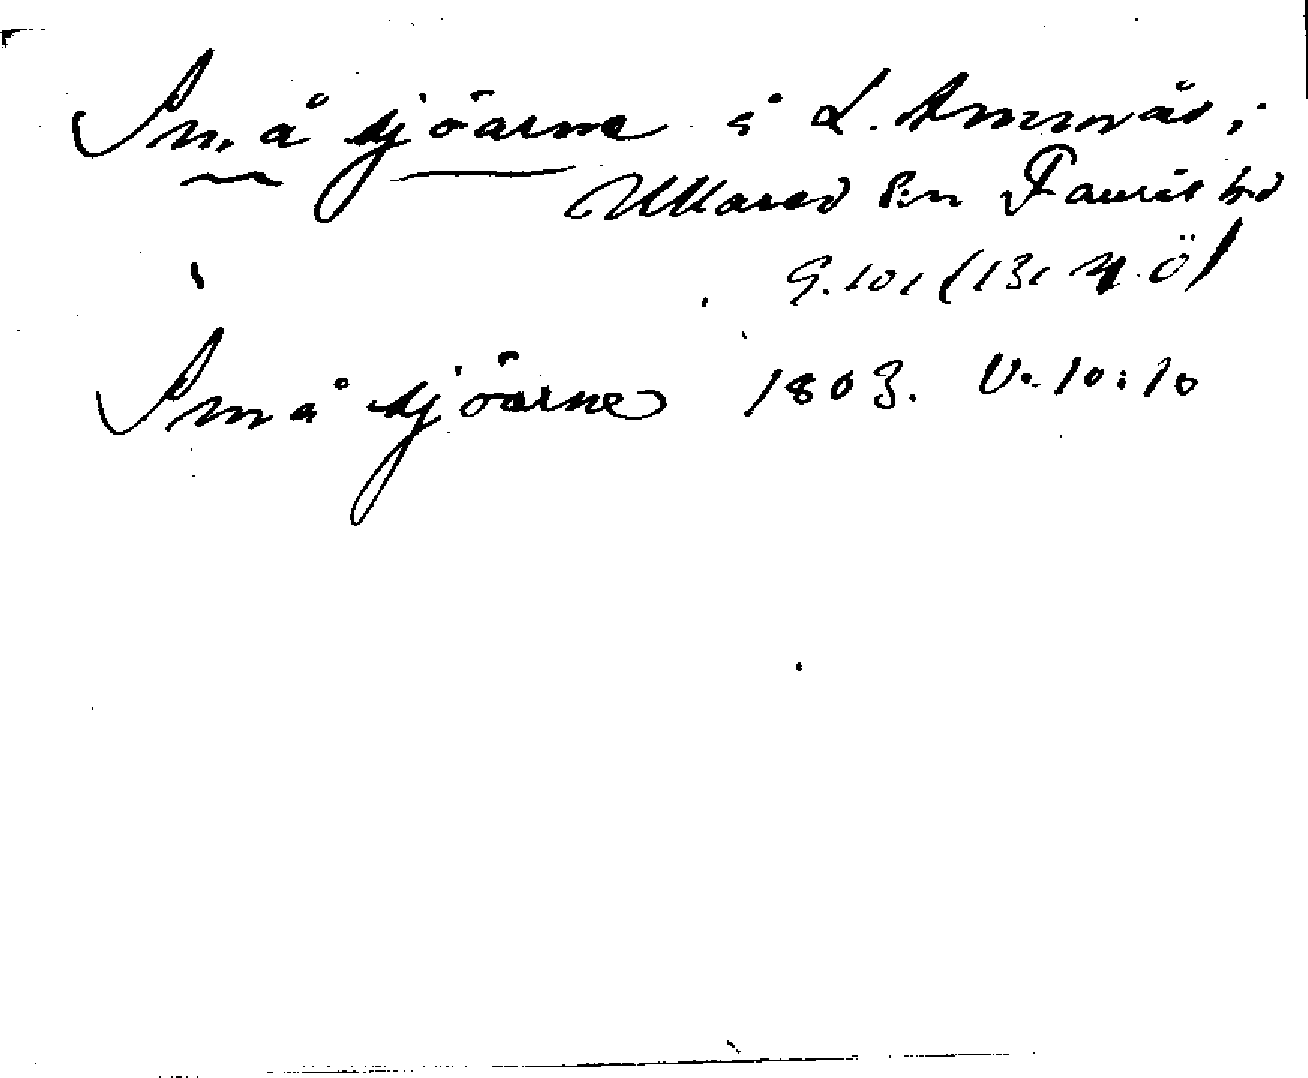 Små sjöarne i L. Ammås,
Ullared Sn Faurås hd
G. 101 (131 4. Ö)
Små sjöarne 1803. V. 10:10